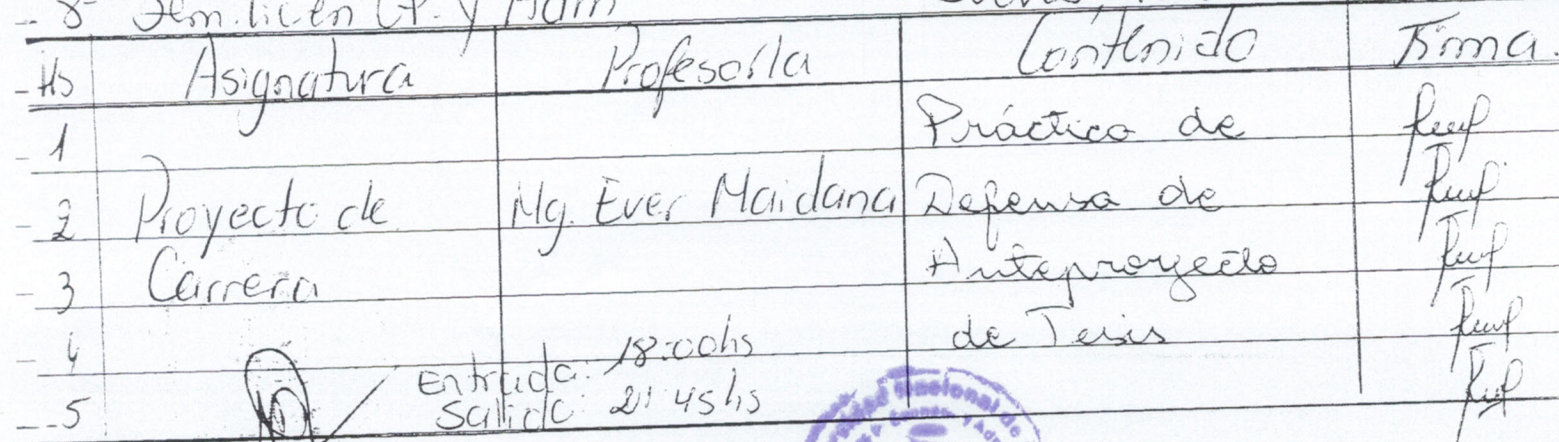 8º Sem. Lic. en CP. y Adm
Hs Asignatura Profesor/a Contenido Firma.
1 Práctica de
2 Proyecto de Mg. Ever Maidana Defensa de
3 Carrera Anteproyecto
4 de Tesis
Entrada: 18:00hs
5 Salida: 21:45hs
Nacional de